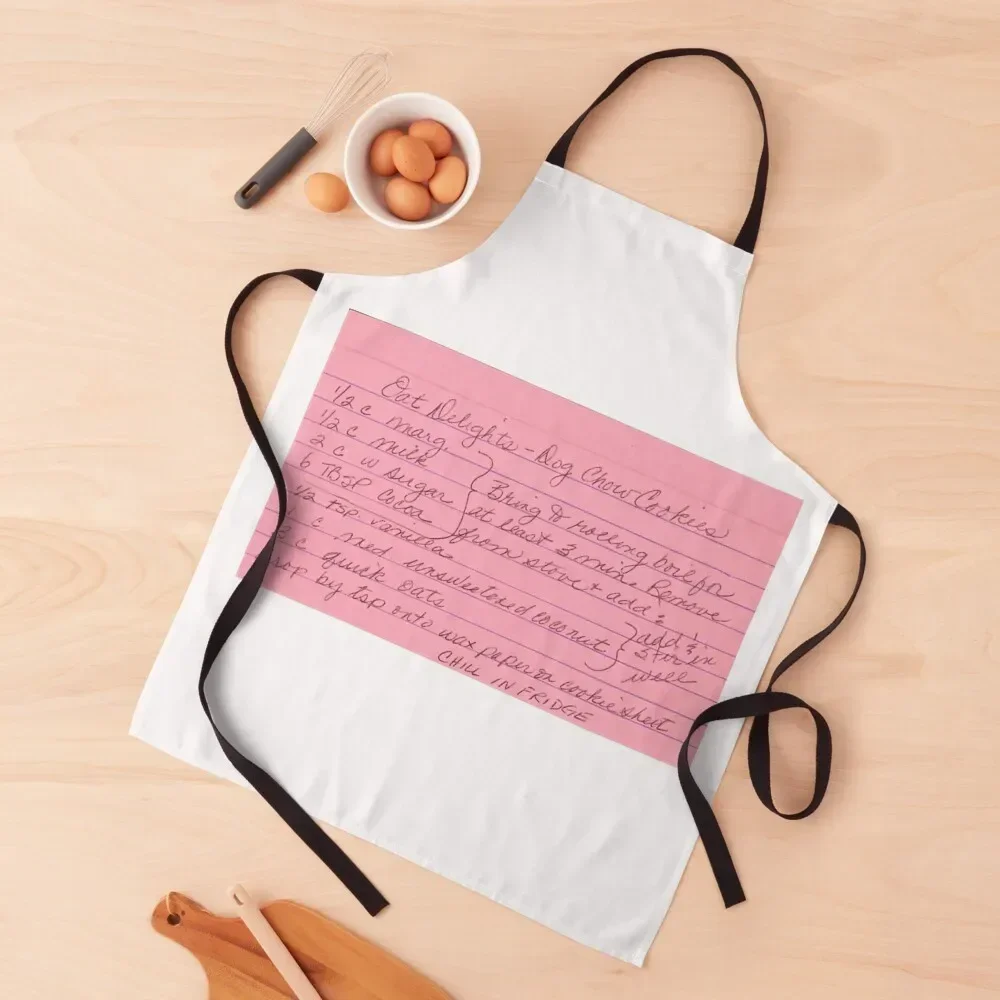 Oat Delights - Dog Chow Cookies
1/2 c marg.
1/2 c milk
2 c w sugar
6 TBSP cocoa
1/2 tsp. vanilla
Bring to rolling boil for
at least 3 mins. Remove
from stove & add:
c med unsweetened coconut
c quick oats
add &
stir in
well
drop by tsp onto wax paper or cookie sheet
CHILL IN FRIDGE